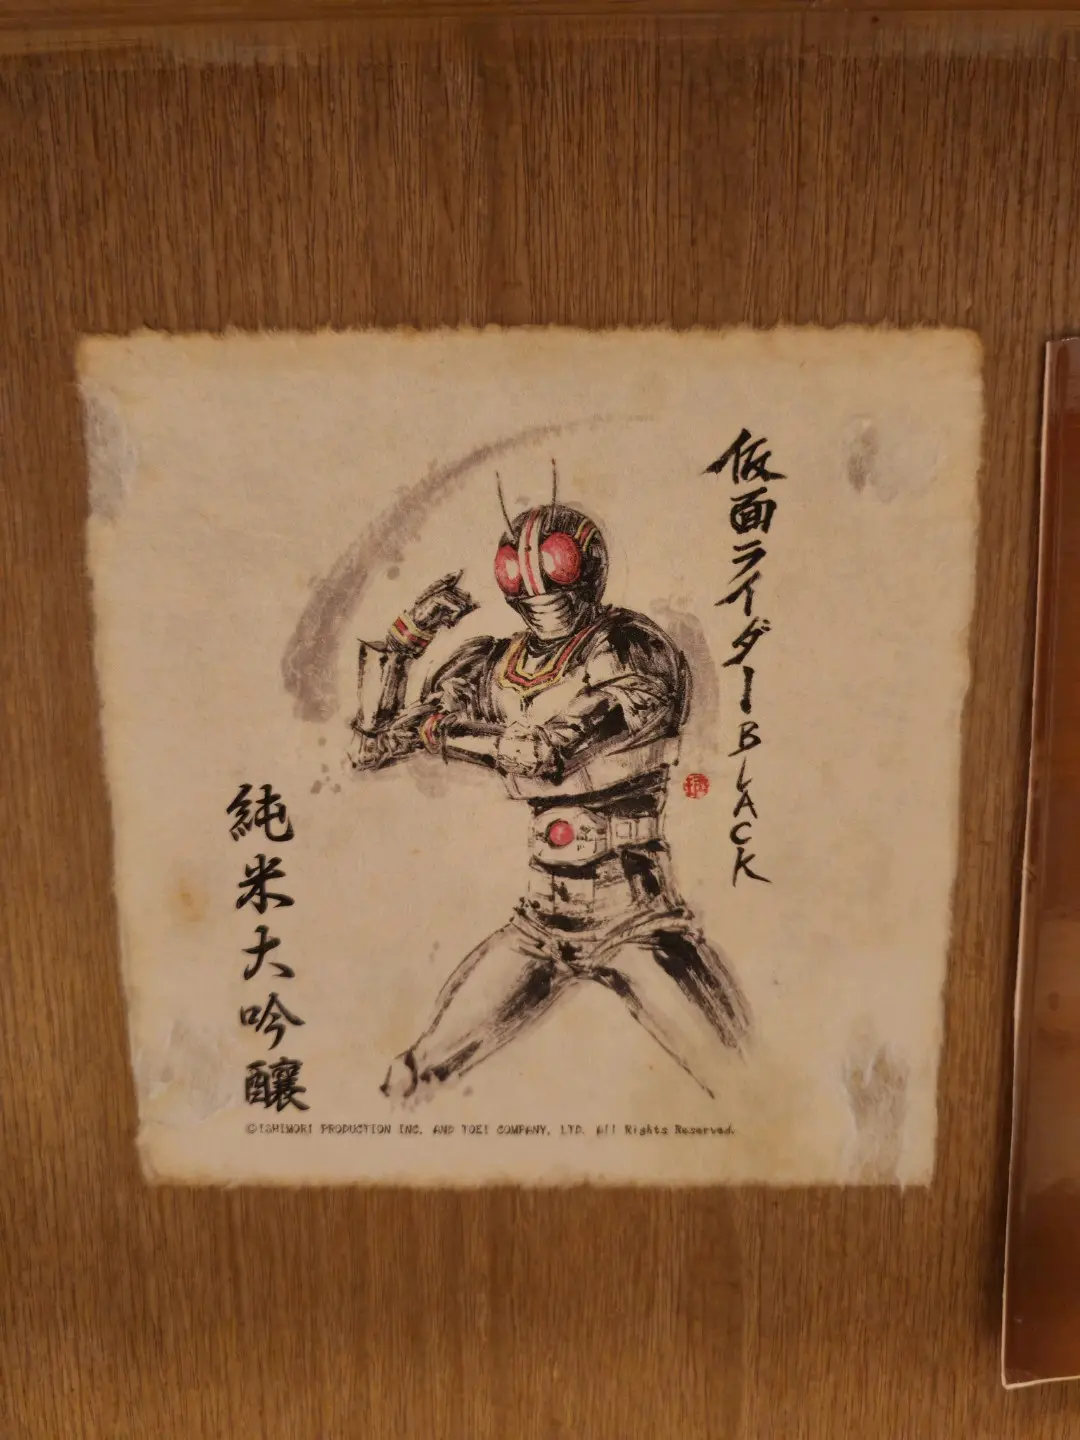 仮面ライダーBLACK
純米大吟醸
©ISHIMORI PRODUCTION INC. AND TOEI COMPANY, LTD. All Rights Reserved.